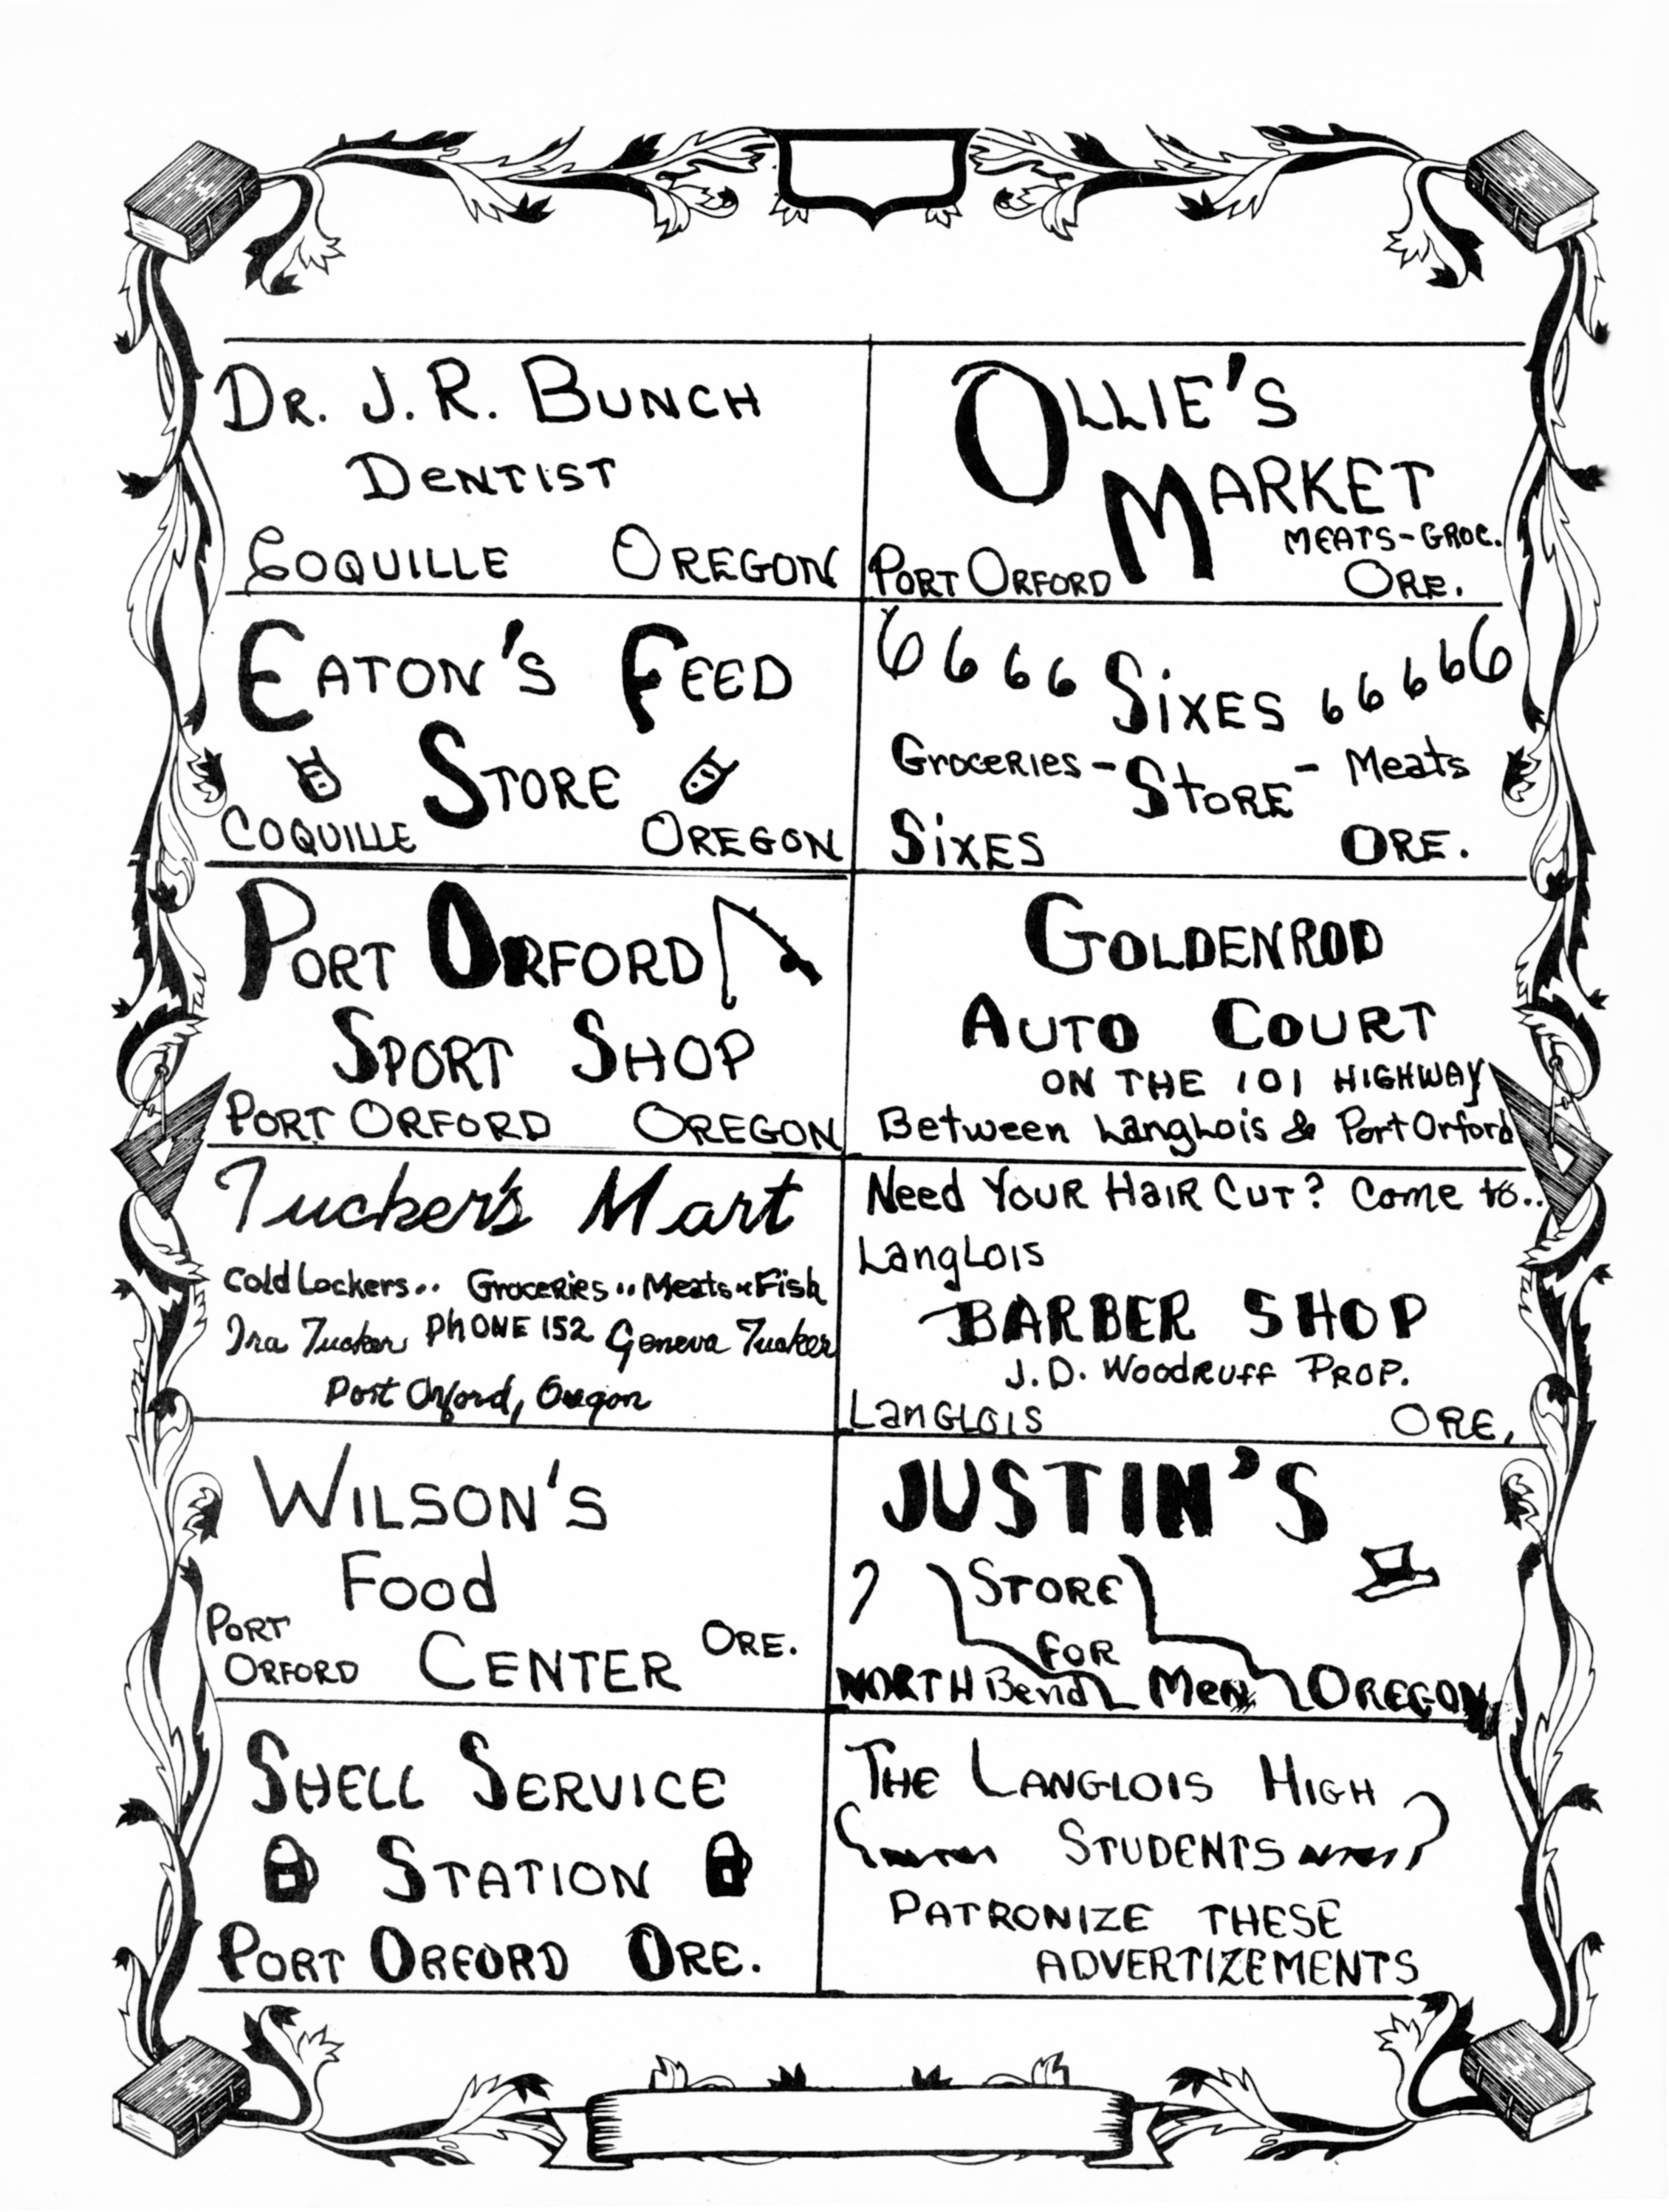 DR. J. R. BUNCH
DENTIST
COQUILLE OREGON
OLLIE'S
MARKET
MEATS-GROC.
PORT ORFORD ORE.
EATON'S FEED
STORE
COQUILLE OREGON
6 6 6 6 SIXES 6 6 6 6 6
Groceries - STORE - Meats
SIXES ORE.
PORT ORFORD
SPORT SHOP
PORT ORFORD OREGON
GOLDENROD
AUTO COURT
ON THE 101 HIGHWAY
Between Langlois & Port Orford
Tucker's Mart
Cold Lockers.. Groceries..Meats..Fish
Ira Tucker PHONE 152 Geneva Tucker
Port Orford, Oregon
Need YOUR HAIR CUT? Come to..
Langlois
BARBER SHOP
J.D. Woodruff PROP.
Langlois ORE,
WILSON'S
Food
PORT
ORFORD CENTER ORE.
JUSTIN'S
STORE
FOR
NORTH Bend Men OREGON
SHELL SERVICE
STATION
PORT ORFORD ORE.
THE LANGLOIS HIGH
STUDENTS
PATRONIZE THESE
ADVERTIZEMENTS